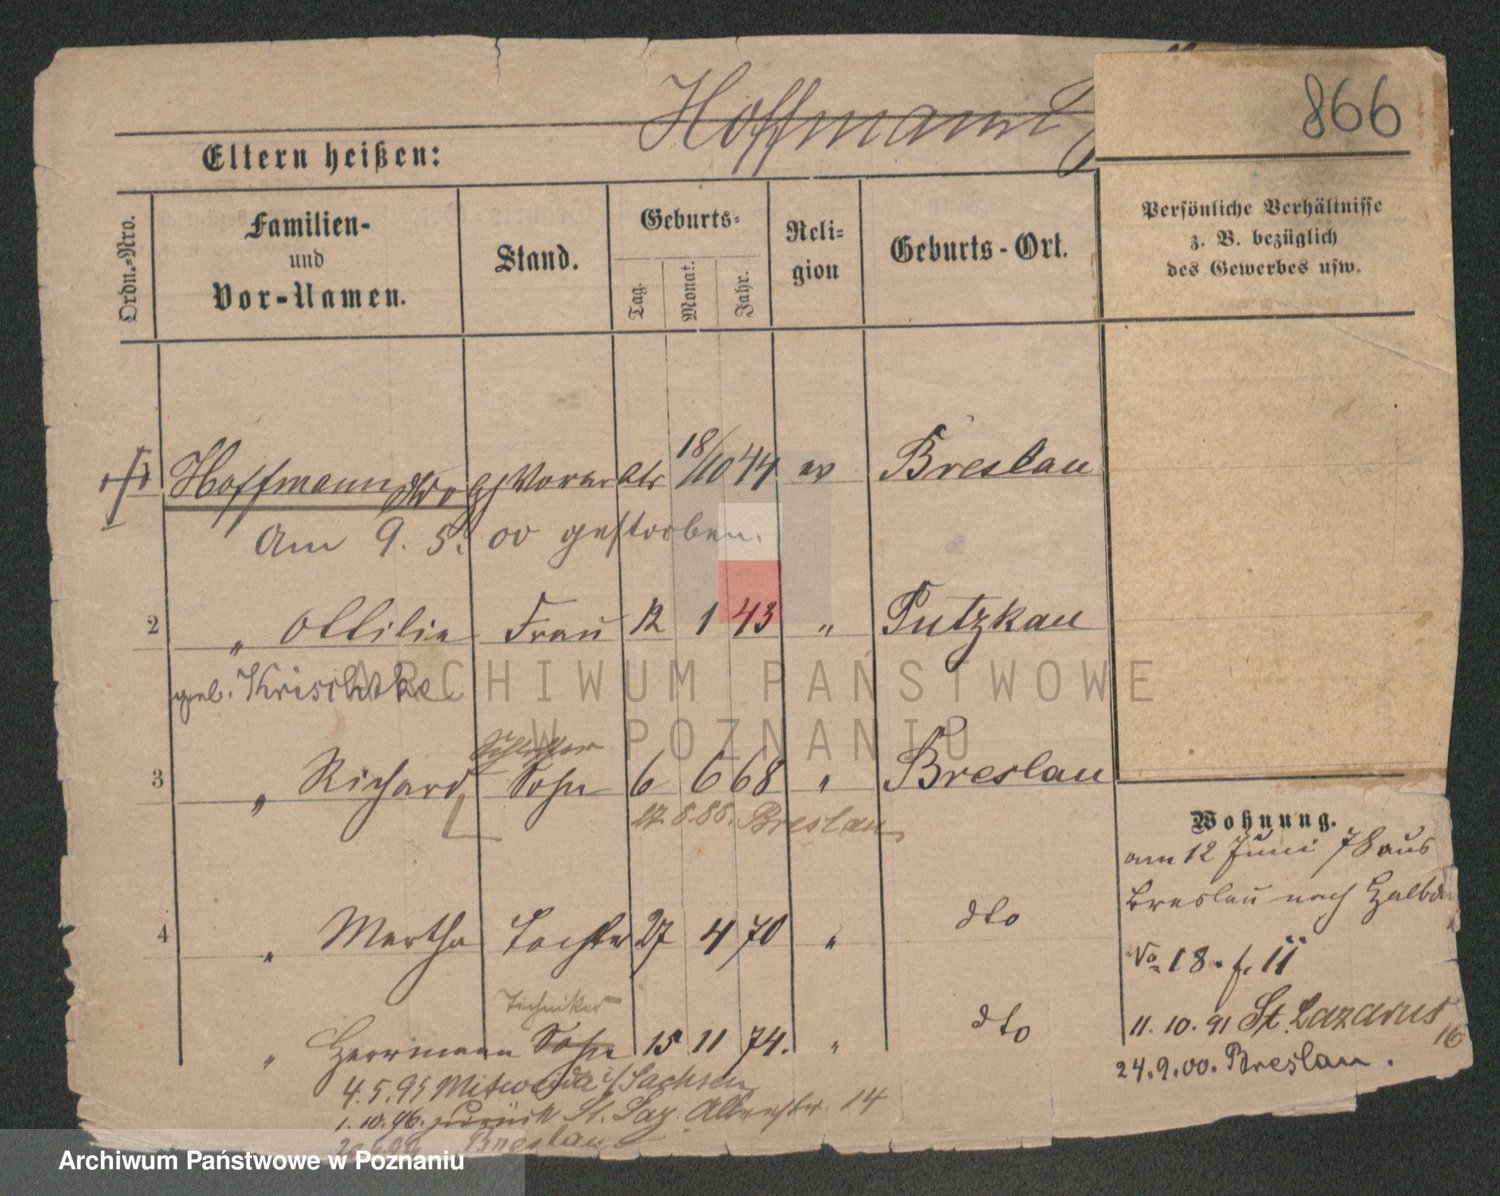 Hoffmann
866
Eltern heißen:
Ordn.-Nro.
Familien-
und
Vor-Namen.
Stand.
Geburts-
Tag.
Monat.
Jahr.
Reli-
gion
Geburts-Ort.
Persönliche Verhältnisse
z. B. bezüglich
des Gewerbes usw.
Hoffmann 18/10 44 ev Breslau
Am 9. 5. 00 gestorben.
2 " Ottilie Frau 12 1 43 " Putzkau
geb. Krischke
Schlosser
3 " Richard Sohn 6 6 68 " Breslau
17. 8. 86. Breslau
4 " Martha Tochter 27 4 70 " dto
Techniker
" Herrmann Sohn 15 11 74. " dto
4.5.95 Mitweida i/Sachsen
1.10.96. zurück St. Laz. 14
Breslau
Wohnung.
am 12 Juni 78 aus
Breslau nach
No 18. f. II
11. 10. 91 St. Lazarus
16
24. 9. 00. Breslau.
ARCHIWUM PAŃSTWOWE
W POZNANIU
Archiwum Państwowe w Poznaniu